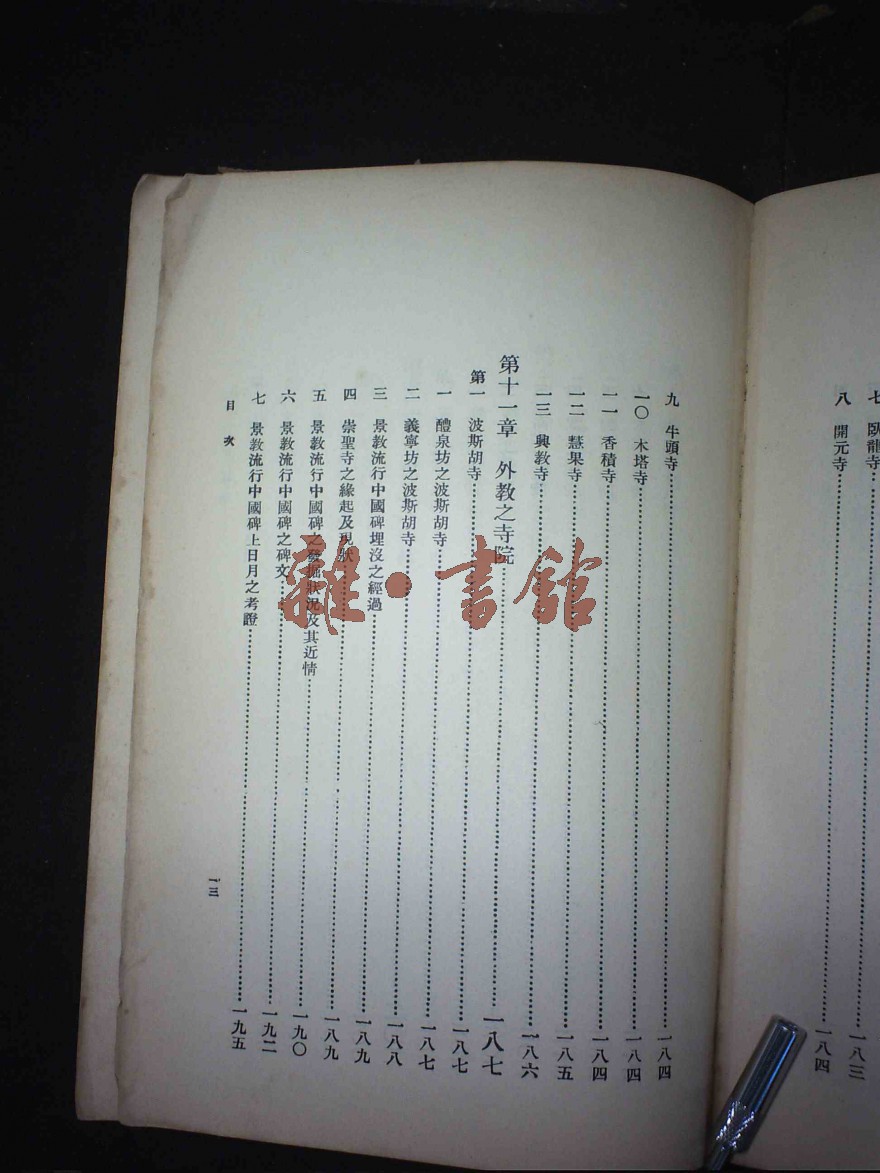 七 臥龍寺 一八三
八 開元寺 一八四
九 牛頭寺 一八四
一〇 木塔寺 一八四
一一 香積寺 一八四
一二 慧果寺 一八五
一三 興教寺 一八六
第十一章 外教之寺院 一八七
第一 波斯胡寺 一八七
一 醴泉坊之波斯胡寺 一八七
二 義寧坊之波斯胡寺 一八八
三 景教流行中國碑埋沒之經過 一八九
四 崇聖寺之緣起及現狀 一八九
五 景教流行中國碑之發掘狀況及其近情 一九〇
六 景教流行中國碑之碑文 一九二
七 景教流行中國碑上日月之考證 一九五
目次
一三
雜·書館